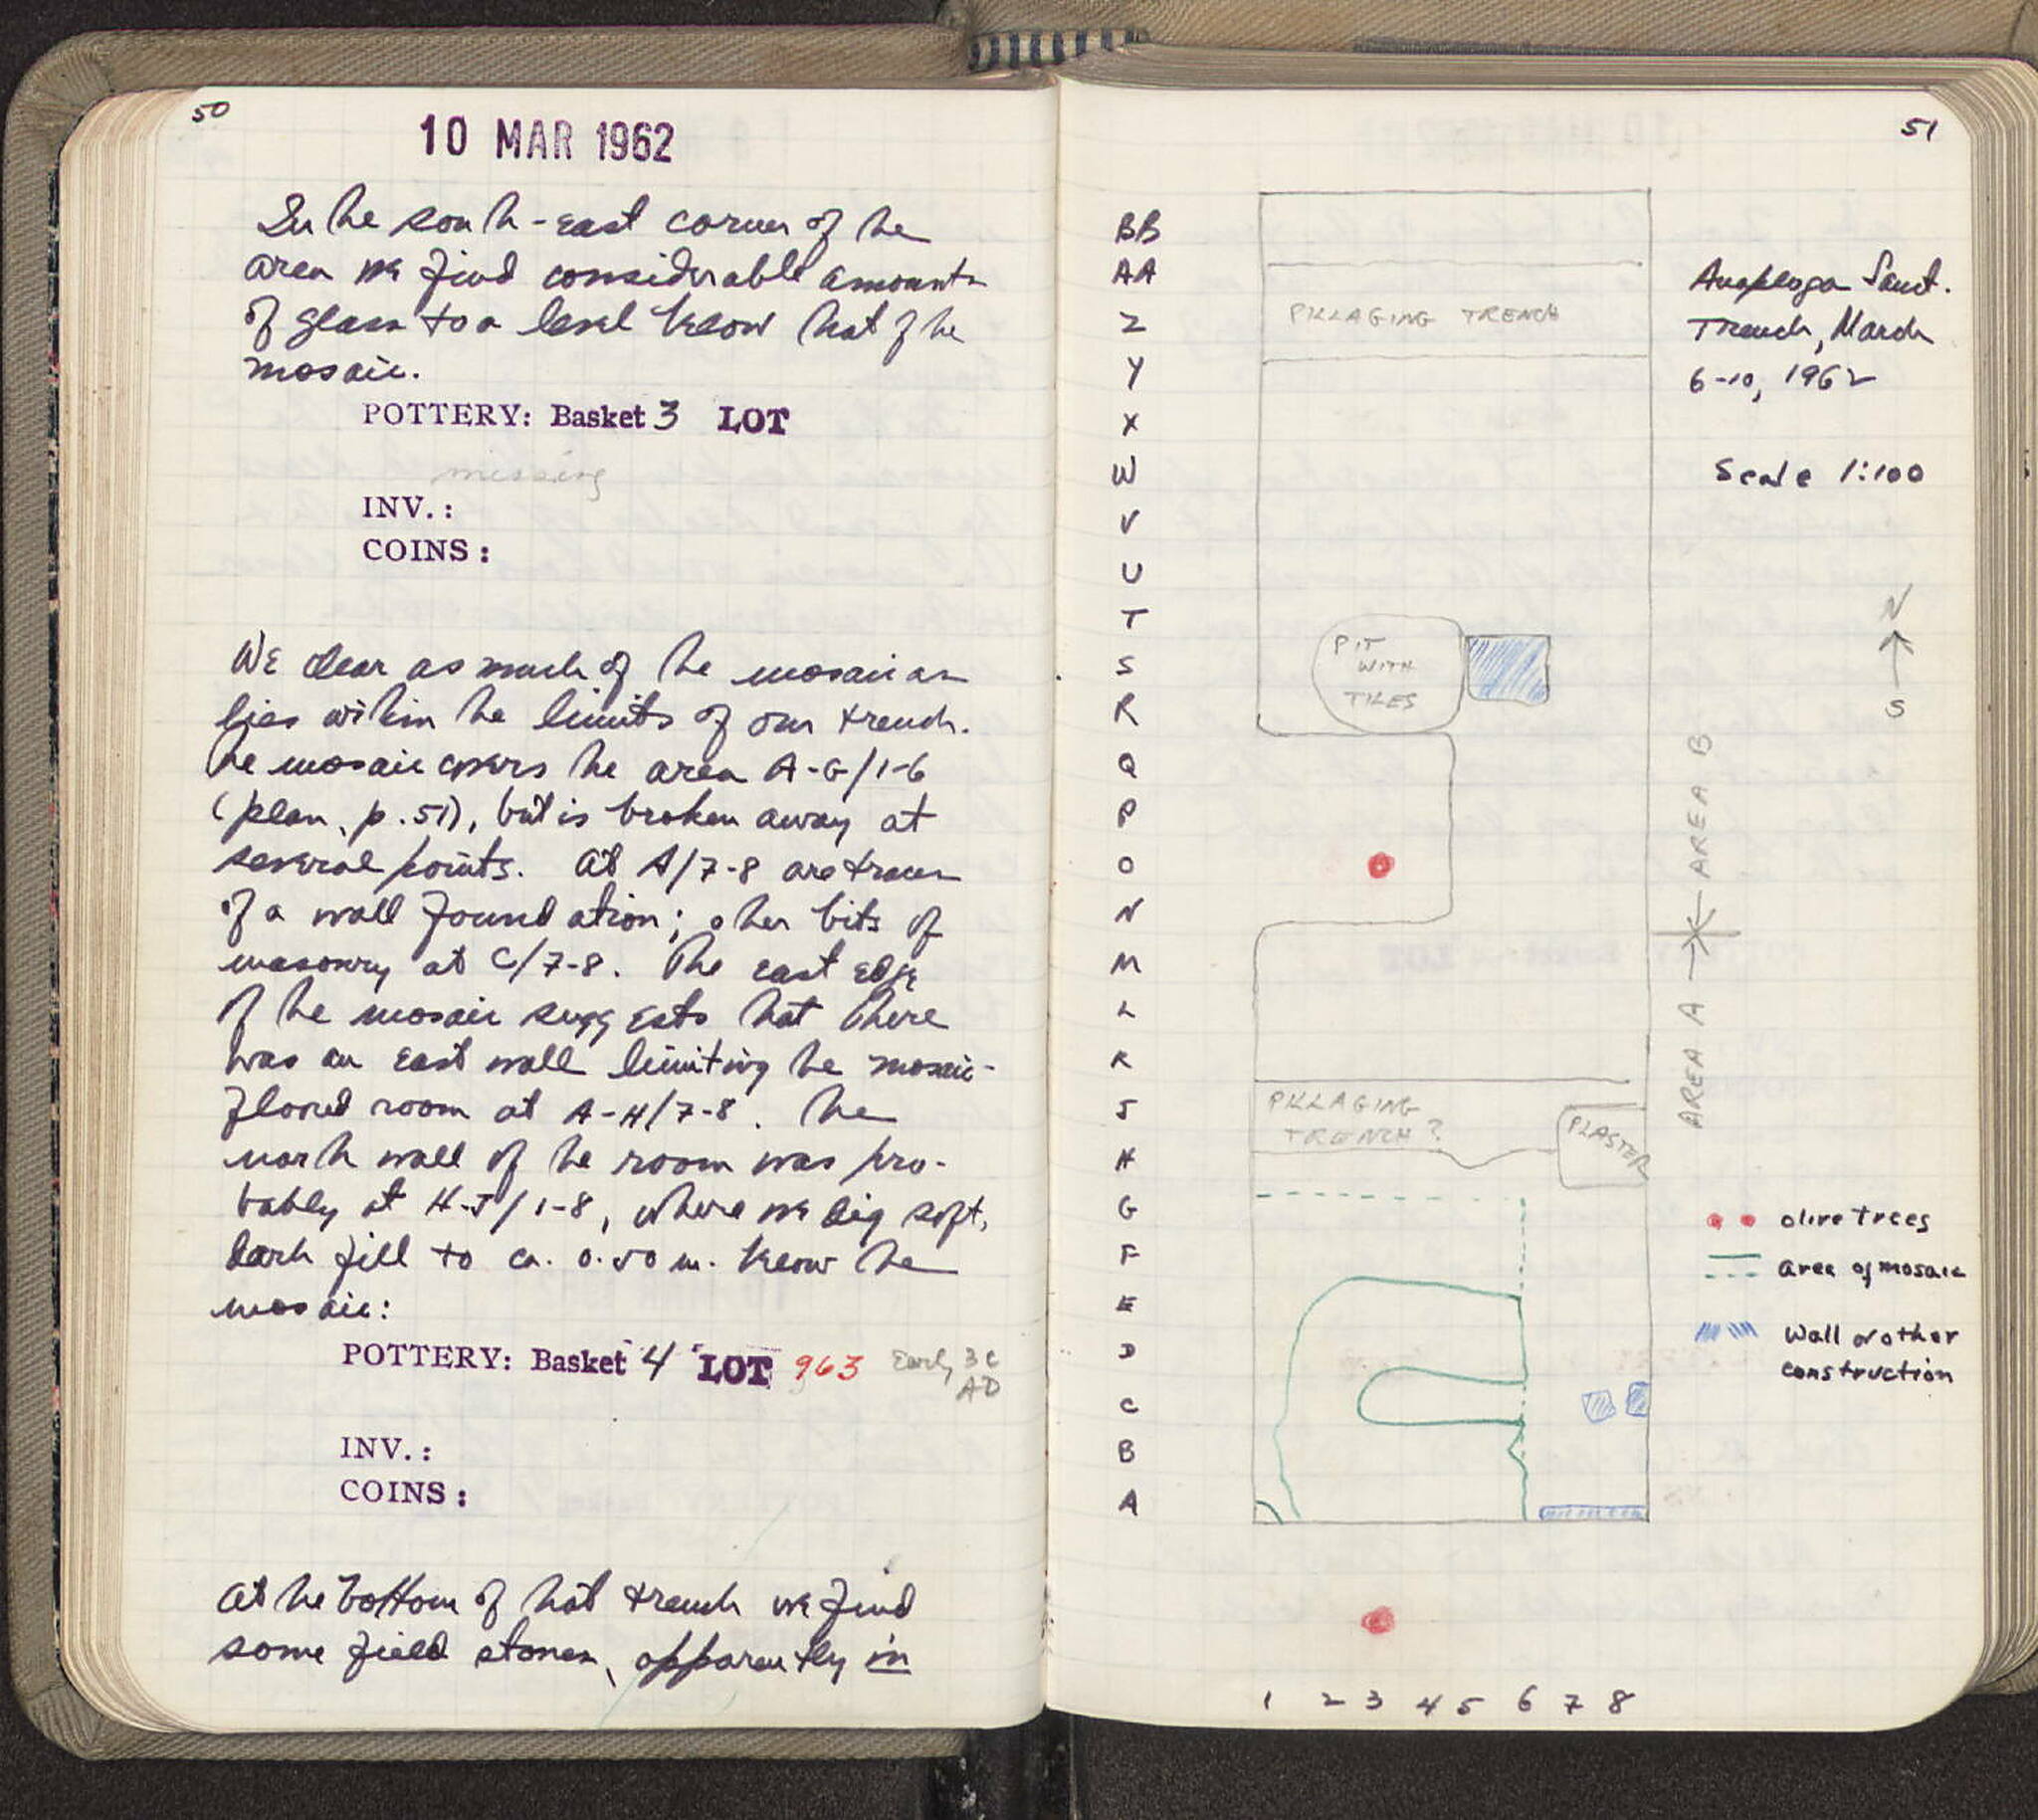 50
10 MAR 1962
In the south-east corner of the
area we find considerable amounts
of glass to a level below that of the
mosaic.
POTTERY: Basket 3 LOT
missing
INV.:
COINS:
We clear as much of the mosaic as
lies within the limits of our trench.
The mosaic covers the area A-G/1-6
(plan, p. 51), but is broken away at
several points. At A/7-8 are traces
of a wall foundation; other bits of
masonry at C/7-8. The east edge
of the mosaic suggests that there
was an east wall limiting the mosaic-
floored room at A-H/7-8. The
north wall of the room was pro-
bably at H-J/1-8, where we dig soft,
dark fill to ca. 0.50 m. below the
mosaic:
POTTERY: Basket 4 LOT 963 Early 3 C
AD
INV.:
COINS:
At the bottom of that trench we find
some field stones, apparently in
51
BB
AA
Z
Y
X
W
V
U
T
S
R
Q
P
O
N
M
L
K
J
H
G
F
E
D
C
B
A
PILLAGING TRENCH
PIT
WITH
TILES
PILLAGING
TRENCH?
PLASTER
1 2 3 4 5 6 7 8
Anaploga Sanct.
Trench, March
6-10, 1962
Scale 1:100
N
S
AREA B
AREA A
olive trees
area of mosaic
Wall or other
construction